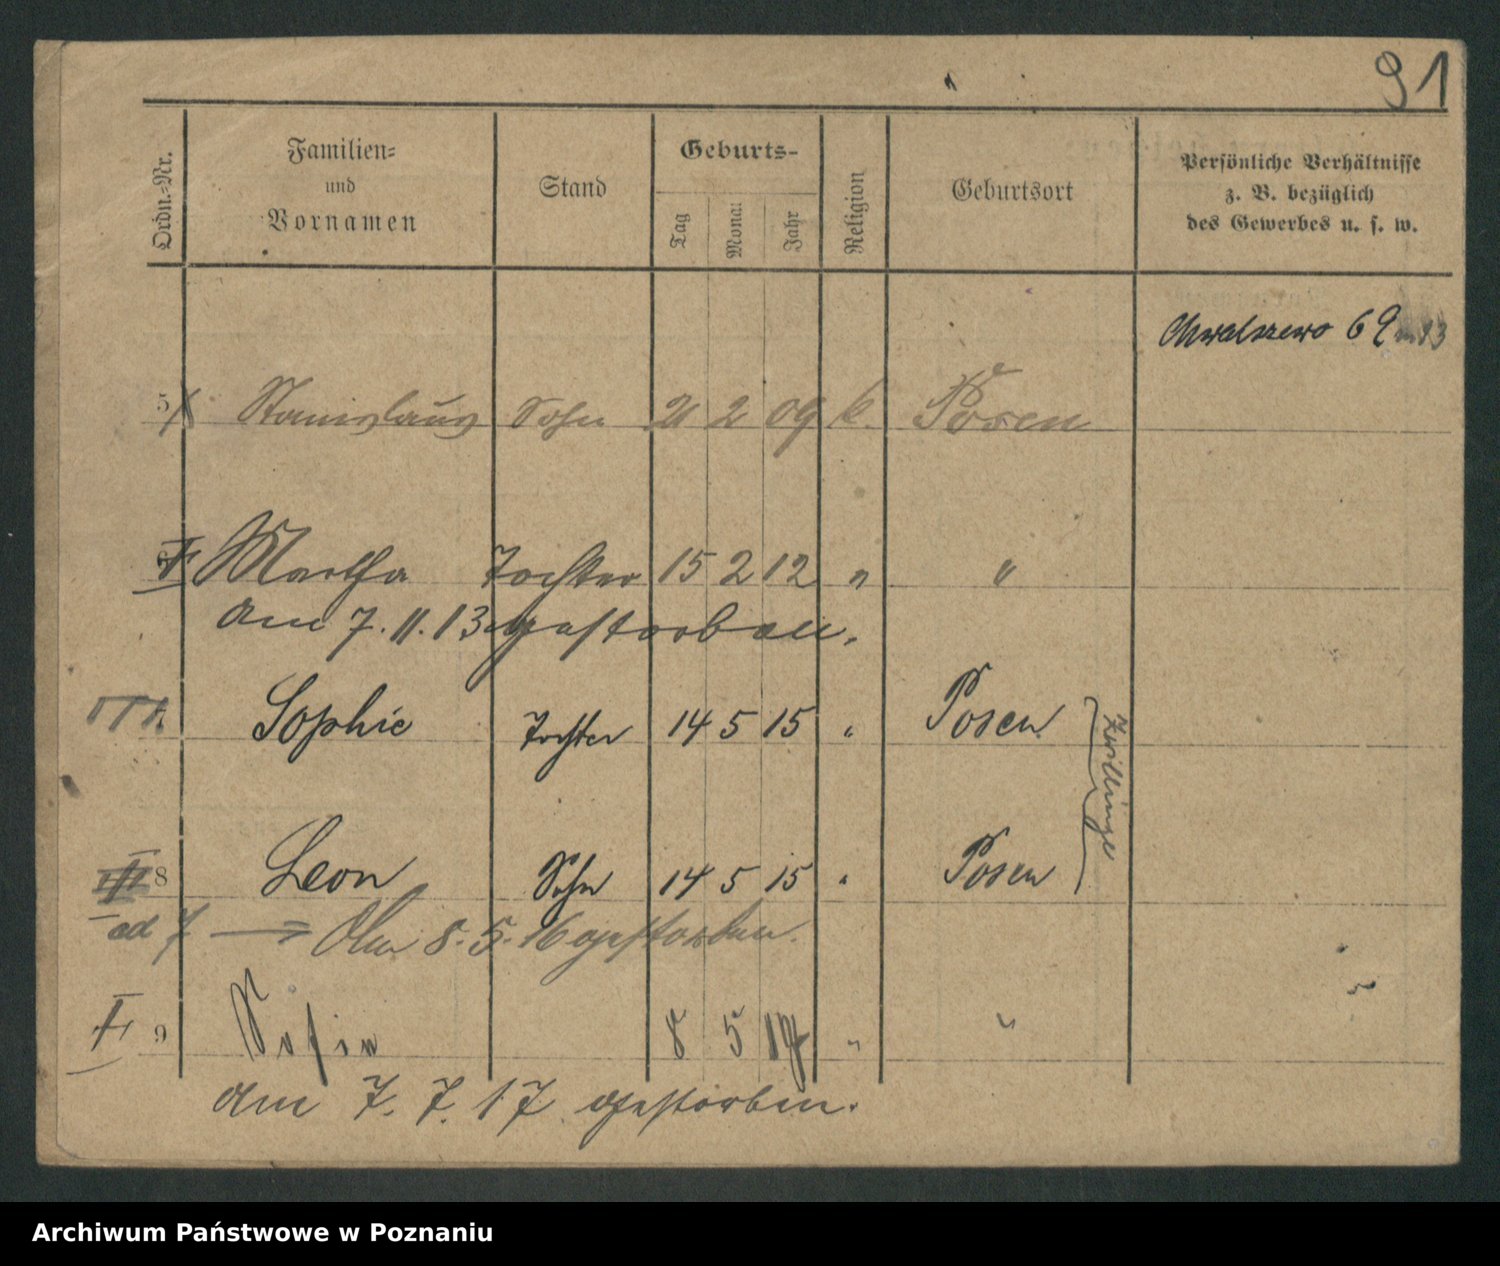 91
Ordn.-Nr. Familien- und Vornamen Stand Geburts- Tag Monat Jahr Religion Geburtsort Persönliche Verhältnisse z. B. bezüglich des Gewerbes u. s. w.
Chwalszewo 69
5 Stanislaus Sohn 21 2 09 k. Posen
6 Martha Tochter 15 2 12 " "
am 7.11.13 gestorben.
7 Sophie Tochter 14 5 15 " Posen
Zwillinge
8 Leon Sohn 14 5 15 " Posen
ad 7 Am 8.5.16 gestorben.
9 Sofie 8 5 17 " "
am 7.7.17 gestorben.
Archiwum Państwowe w Poznaniu